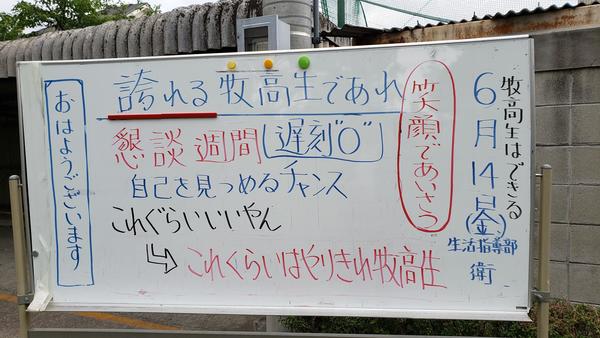 牧高生はできる
6月14日(金)
生活指導部
衛
笑顔であいさつ
誇れる牧高生であれ
懇談週間 遅刻"0"
自己を見つめるチャンス
これぐらいいいやん
これくらいはやりきれ牧高生
おはようございます